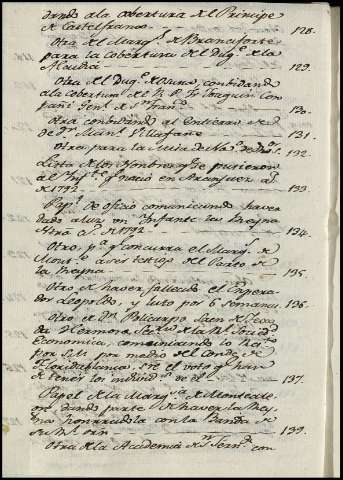 dando a la cobertura del Principe
de Castelfranco. 128.
Otra del Marq.s de Branciforte
para la Cobertura del Duq.e de la
Alcudia 129.
Otra del Duq.e de Osuna, combidando
a la cobertura del R. P. Fr. Joaquin Com
pañi Gen.l de S.n Fran.co 130.
Otra combidando al Entierro de
de D.n Man.l Villafañe 131.
Otro para la Misa de 132.
Lista de los Nombres q.e se pusieron
al Inf.te q.e nacio en Aranjuez a.o
de 1792. 133.
Pap.l de oficio comunicando haver
dado a luz un Infante la Reyna
Ntra a.o de 1792 134.
Otro, p.a q.e concurra el Marq.s de
Mont.e a ser testigo del Parto de
la Reyna 135.
Otro de haver fallecido el Empera-
dor Leopoldo, y luto por 6 Semanas 136.
Otro de D.n Policarpo Saen de Texa
da Hermoso, Secr.o de la R.l Socied.
Economica, comunicando lo
por S.M. por medio del Conde de
Floridablanca, sre el voto q.e han
de tener los individ.s de ella 137.
Papel de la Marq.sa de Monteale-
gre, dando parte de haver la Rey-
na honrradola con la Banda de
su R.l orn 139.
Otra de la Academia de S.n Fern.do con